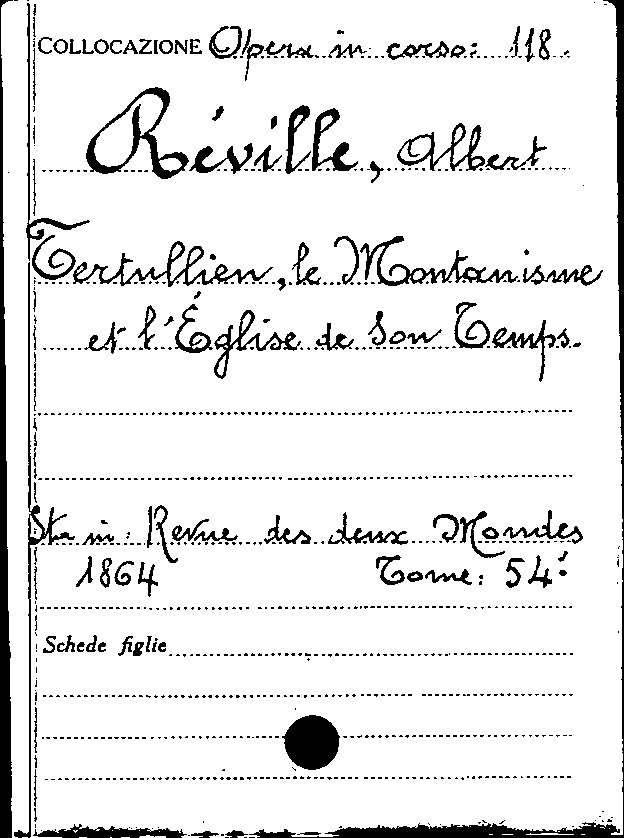 COLLOCAZIONE Opera in corso: 118.
Réville, Albert
Tertullien, le Montanisme
et l'Église de Son Temps.
Sta in: Revue des deux Mondes
1864 Tome: 54é
Schede figlie